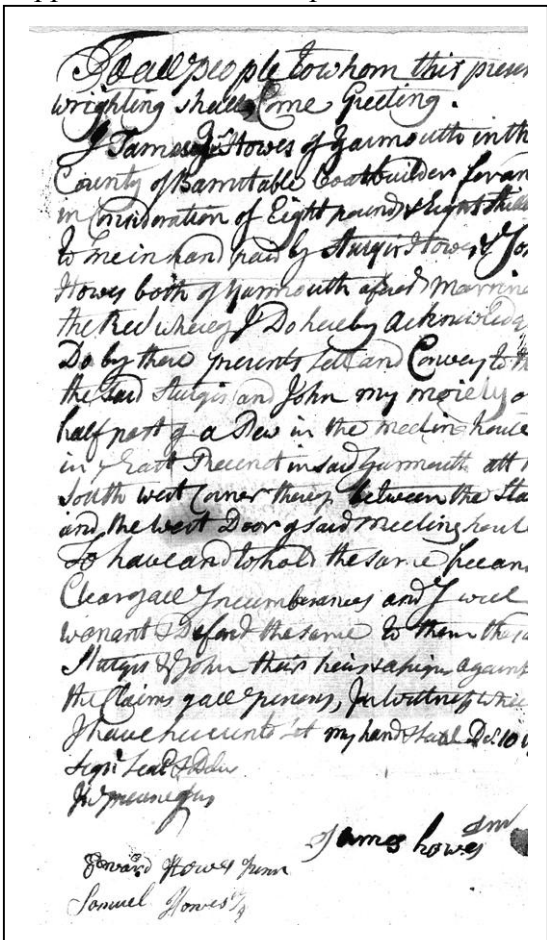 To all people to whom this presen
wrighting shall Come Greeting.
I James Howes of Yarmouth in th
County of Barnstable Boatbuilder for an
in Consideration of Eight pounds & Eight shill
to me in hand paid by Sturgis Howes & Jo
Howes both of Yarmouth afores.d Marrine
the Rec.t whereof I Do hereby acknowledg
Do by these presents sell and Convey to th
the said Sturgis and John my moiety o
half part of a Pew in the meeting house
in y.e East Precinct in said Yarmouth att
South west Corner thereof between the Sta
and the West Door of said Meeting house
To have and to hold the same free an
Clear of all Incumberances and I will
warrant & Defend the same to them the sa
Sturgis & John their heirs & assigns against
the Claims of all persons, In Wittness whe
I have hereunto set my hand & seal De.c 10
Sign.d Seal.d & Deliv
In presence of us
James howes
Edward Howes Junr
Samuel Howes